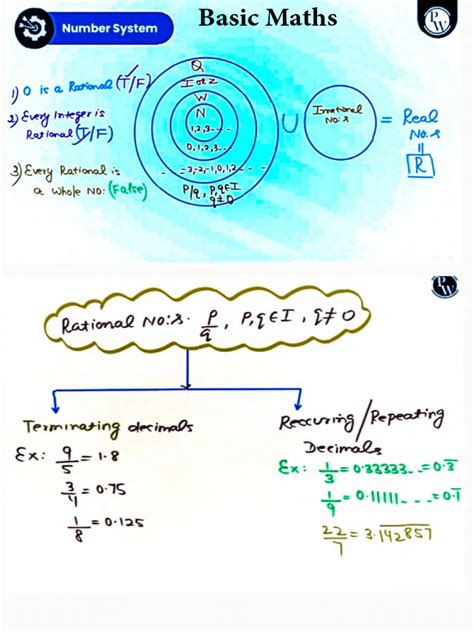 Basic Maths
Number System
PW
1) 0 is a Rational (T/F)
2) Every Integer is
Rational (T/F)
3) Every Rational is
a whole No: (False)
Q
I or Z
W
N
1,2,3---
0,1,2,3---
---3,-2,-1,0,1,2---
P/q, P,q∈I
q≠0
U
Irrational
No:s
= Real
No.s
=
R
PW
Rational No:s. P/q, P,q∈I, q≠0
Terminating decimals
Ex: 9/5 = 1.8
3/4 = 0.75
1/8 = 0.125
Reccuring/Repeating
Decimals
Ex: 1/3 = 0.33333...=0.3̅
1/9 = 0.11111-...=0.1̅
22/7 = 3.1̅4̅2̅8̅5̅7̅